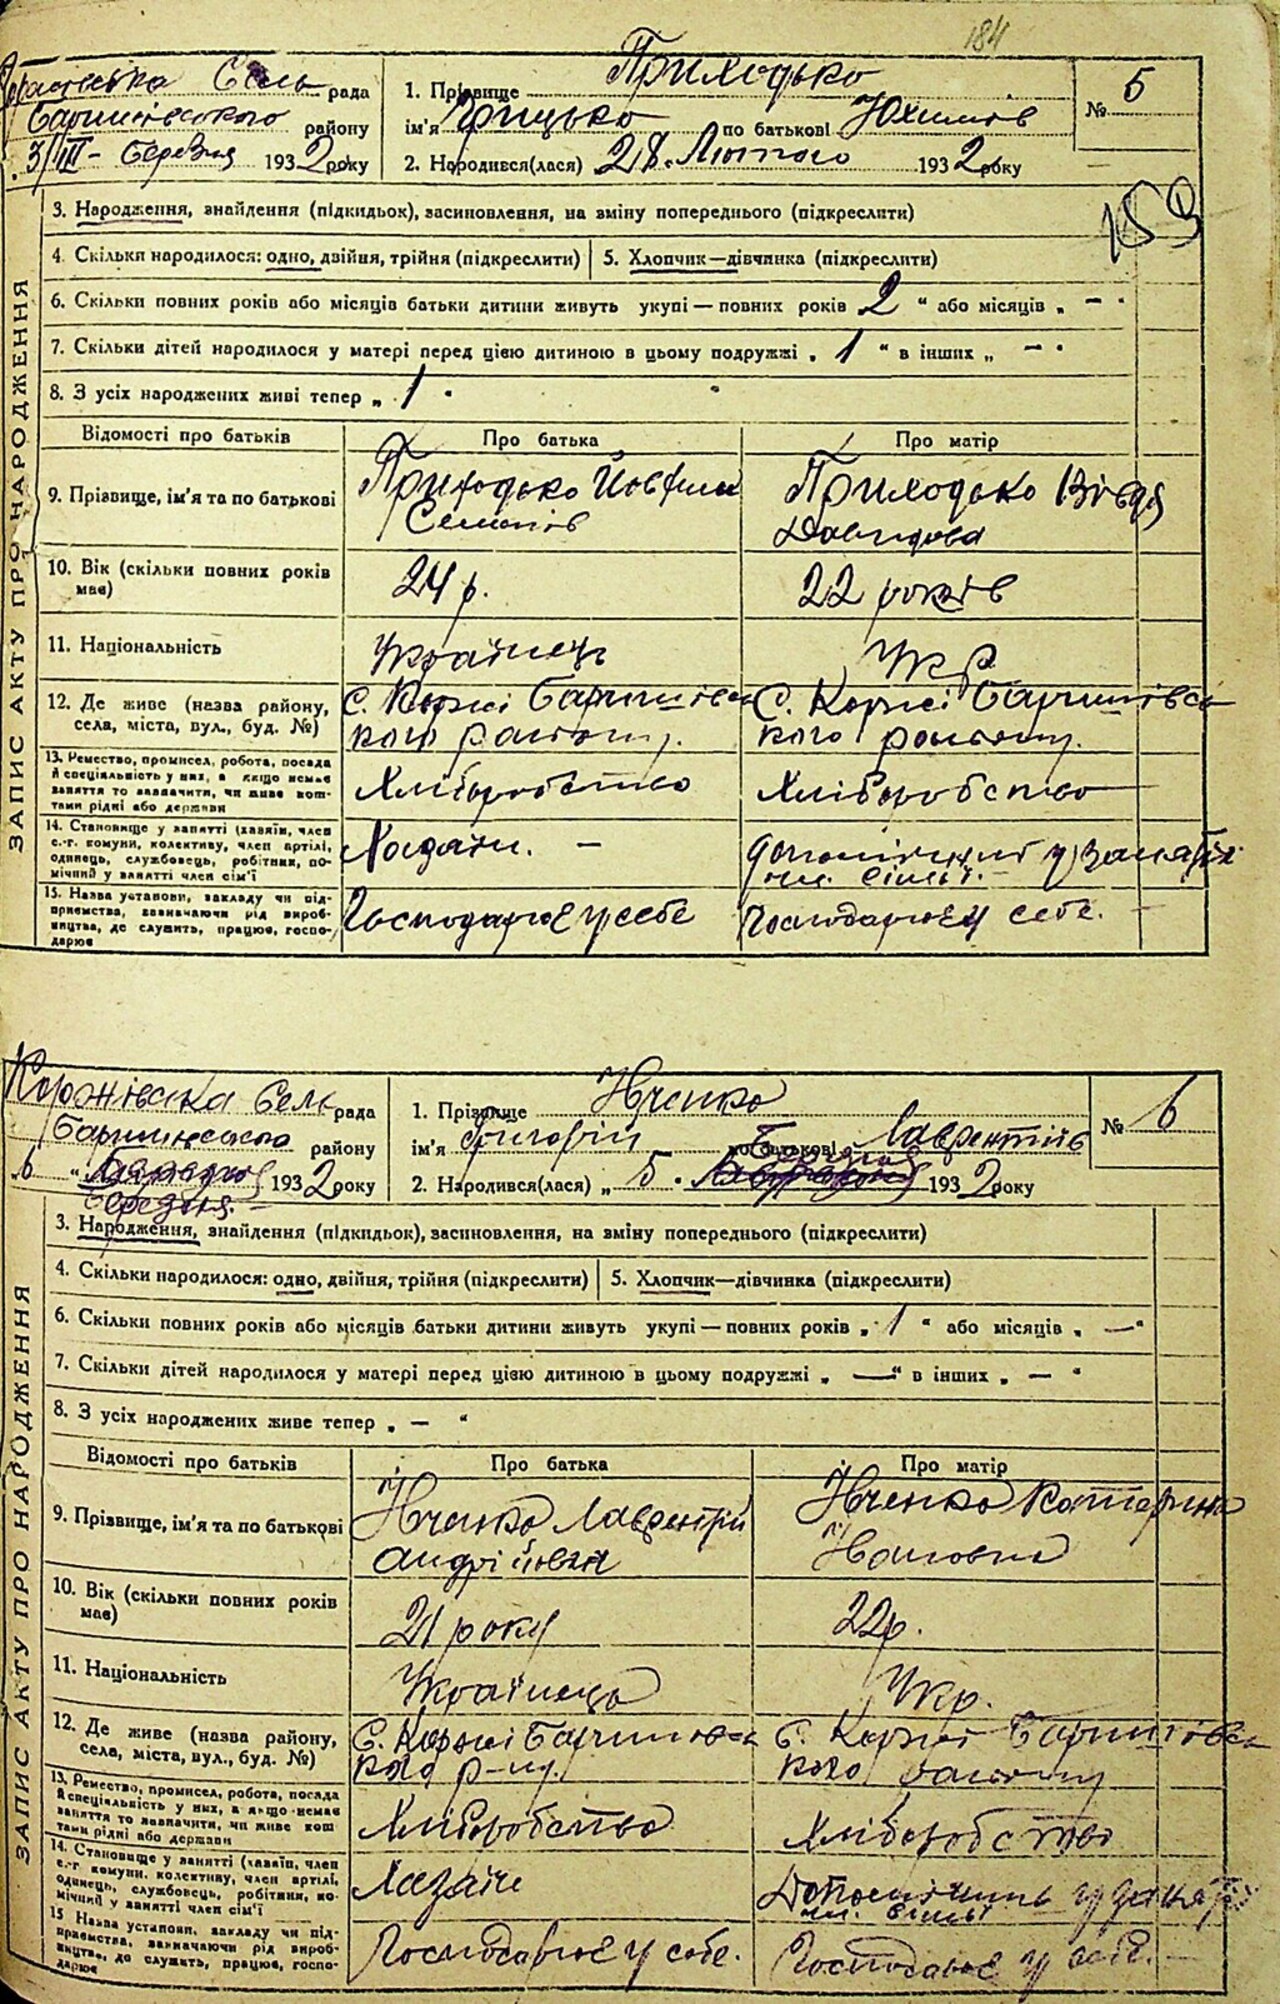 184
Сель рада
Баришівського району
3/III - Березня 1932 року
1. Прізвище Приходько
ім'я Грицько по батькові Юхимів
2. Народився(лася) 28. Лютого 1932 року
№ 5
ЗАПИС АКТУ ПРО НАРОДЖЕННЯ
3. Народження, знайдення (підкидьок), засиновлення, на зміну попереднього (підкреслити)
4. Скільки народилося: одно, двійня, трійня (підкреслити) 5. Хлопчик—дівчинка (підкреслити)
6. Скільки повних років або місяців батьки дитини живуть укупі — повних років 2 " або місяців „ — "
7. Скільки дітей народилося у матері перед цією дитиною в цьому подружжі „ 1 " в інших „ — "
8. З усіх народжених живі тепер „ 1 "
Відомості про батьків Про батька Про матір
9. Прізвище, ім'я та по батькові Приходько Приходько
Семенів Давидова
10. Вік (скільки повних років має) 24 р. 22 років
11. Національність Українець Укр
12. Де живе (назва району, села, міста, вул., буд. №) с. Коржі Баришівсь с. Коржі Баришівсь
кого району. кого району.
13. Ремество, промисел, робота, посада й спеціальність у них, а якщо немає заняття то зазначити, чи живе коштами рідні або держави Хліборобство Хліборобство
14. Становище у занятті (хазяїн, член с.-г. комуни, колективу, член артілі, одинець, службовець, робітник, помічний у занятті член сім'ї Хазяїн. —
чл. сім'ї. —
15. Назва установи, закладу чи підприємства, зазначаючи рід виробництва, де служить, працює, господарює Господарює у себе Господарює у себе. —
Коржівська Сель рада
району
6 " Березня 1932 року
1. Прізвище Івченко
ім'я Григорій по батькові Лаврентіїв
Березня
2. Народився(лася) „ 5. 1932 року
№ 6
ЗАПИС АКТУ ПРО НАРОДЖЕННЯ
3. Народження, знайдення (підкидьок), засиновлення, на зміну попереднього (підкреслити)
4. Скільки народилося: одно, двійня, трійня (підкреслити) 5. Хлопчик—дівчинка (підкреслити)
6. Скільки повних років або місяців батьки дитини живуть укупі — повних років „ 1 " або місяців „ — "
7. Скільки дітей народилося у матері перед цією дитиною в цьому подружжі „ — " в інших „ — "
8. З усіх народжених живе тепер „ — "
Відомості про батьків Про батька Про матір
9. Прізвище, ім'я та по батькові Івченко Лаврентій Івченко Катерина
Івановна
10. Вік (скільки повних років має) 21 року 22р.
11. Національність Українець Укр.
12. Де живе (назва району, села, міста, вул., буд. №) с. Коржі Баришівсь с. Коржі Баришівсь
кого р-ну. кого району
13. Ремество, промисел, робота, посада й спеціальність у них, а якщо немає заняття то зазначити, чи живе коштами рідні або держави Хліборобство Хліборобство
14. Становище у занятті (хазяїн, член с.-г. комуни, колективу, член артілі, одинець, службовець, робітник, помічний у занятті член сім'ї Хазяїн
чл. сім'ї
15 Назва установи, закладу чи підприємства, зазначаючи рід виробництва, де служить, працює, господарює Господарює у себе. Господарює у себе. —